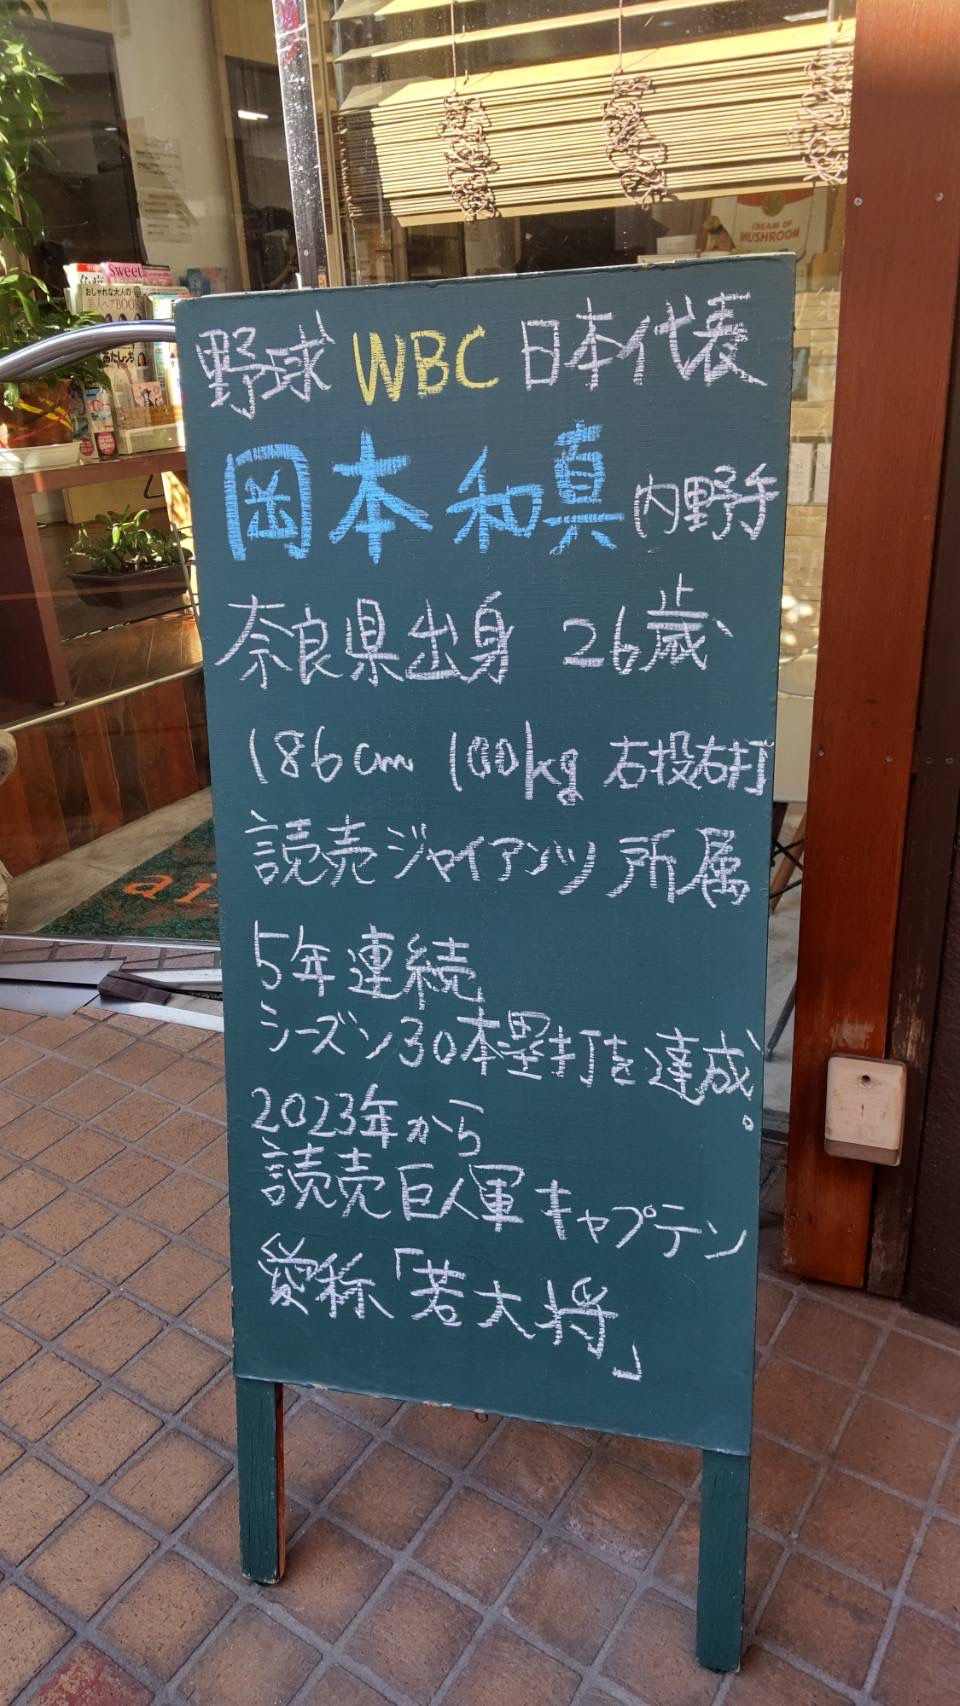 野球 WBC 日本代表
岡本 和真 内野手
奈良県出身 26歳
186cm 100kg 右投右打
読売ジャイアンツ 所属
5年連続
シーズン30本塁打を達成。
2023年から
読売巨人軍キャプテン
愛称「若大将」
CREAM OF
MUSHROOM
Sweet
おしゃれな大人の
美人ヘアBOOK